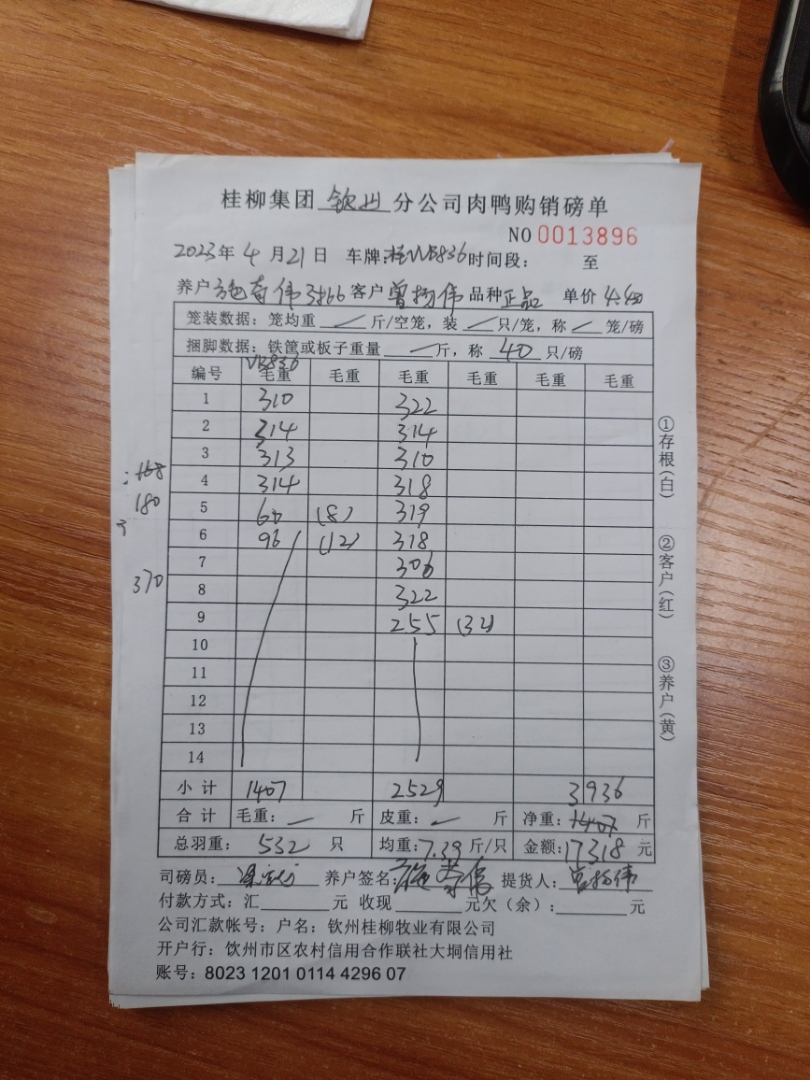 桂柳集团 钦州 分公司肉鸭购销磅单
NO 0013896
2023年 4 月 21 日 车牌: 时间段: 至
养户 伟 客户 曾扬伟 品种 正品 单价
笼装数据：笼均重 斤/空笼，装 只/笼，称 笼/磅
捆脚数据：铁筐或板子重量 斤，称 40 只/磅
VB836
编号 毛重 毛重 毛重 毛重 毛重 毛重
1 310 322
2 314 314
3 313 310
4 314 318
5 60 (8) 319
6 96 (12) 318
7 306
8 322
9 255 (32)
10
11
12
13
14
小计 1407 2529 3936
合计 毛重: 斤 皮重: 斤 净重: 1407 斤
总羽重: 532 只 均重: 7.39 斤/只 金额: 17318 元
司磅员: 养户签名: 提货人: 曾扬伟
付款方式：汇 元 收现 元欠（余）: 元
公司汇款帐号：户名：钦州桂柳牧业有限公司
开户行：钦州市区农村信用合作联社大垌信用社
账号：8023 1201 0114 4296 07
①存根(白)
②客户(红)
③养户(黄)
168
180
370